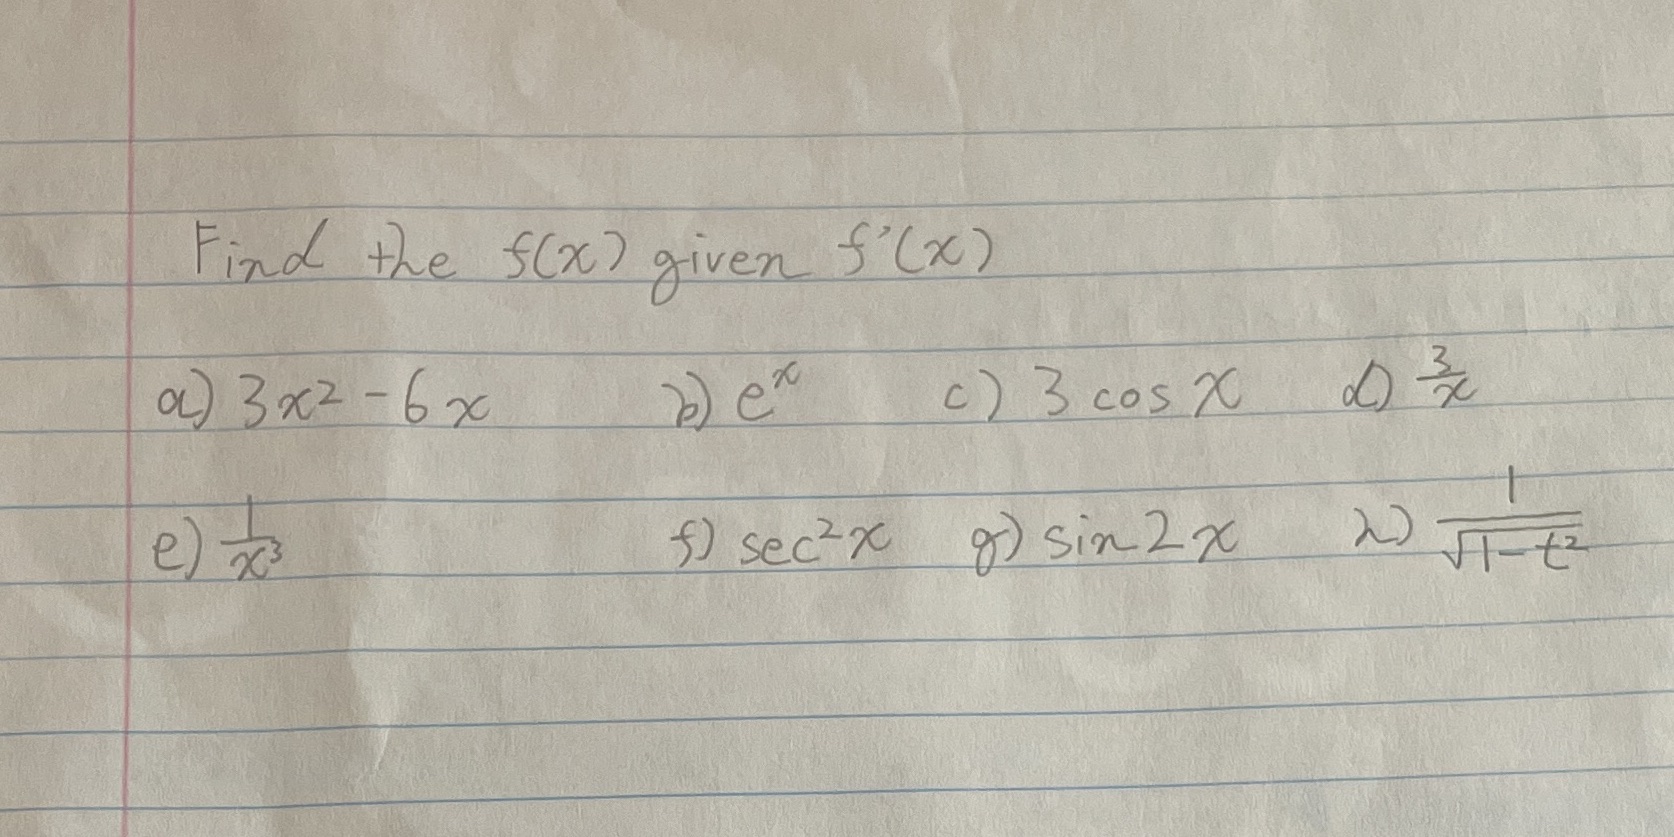 Find the f(x) given f'(x)
a) 3x² - 6x b) eˣ c) 3 cos x d) 3/x
e) 1/x³ f) sec²x g) sin 2x h) 1/√(1-t²)